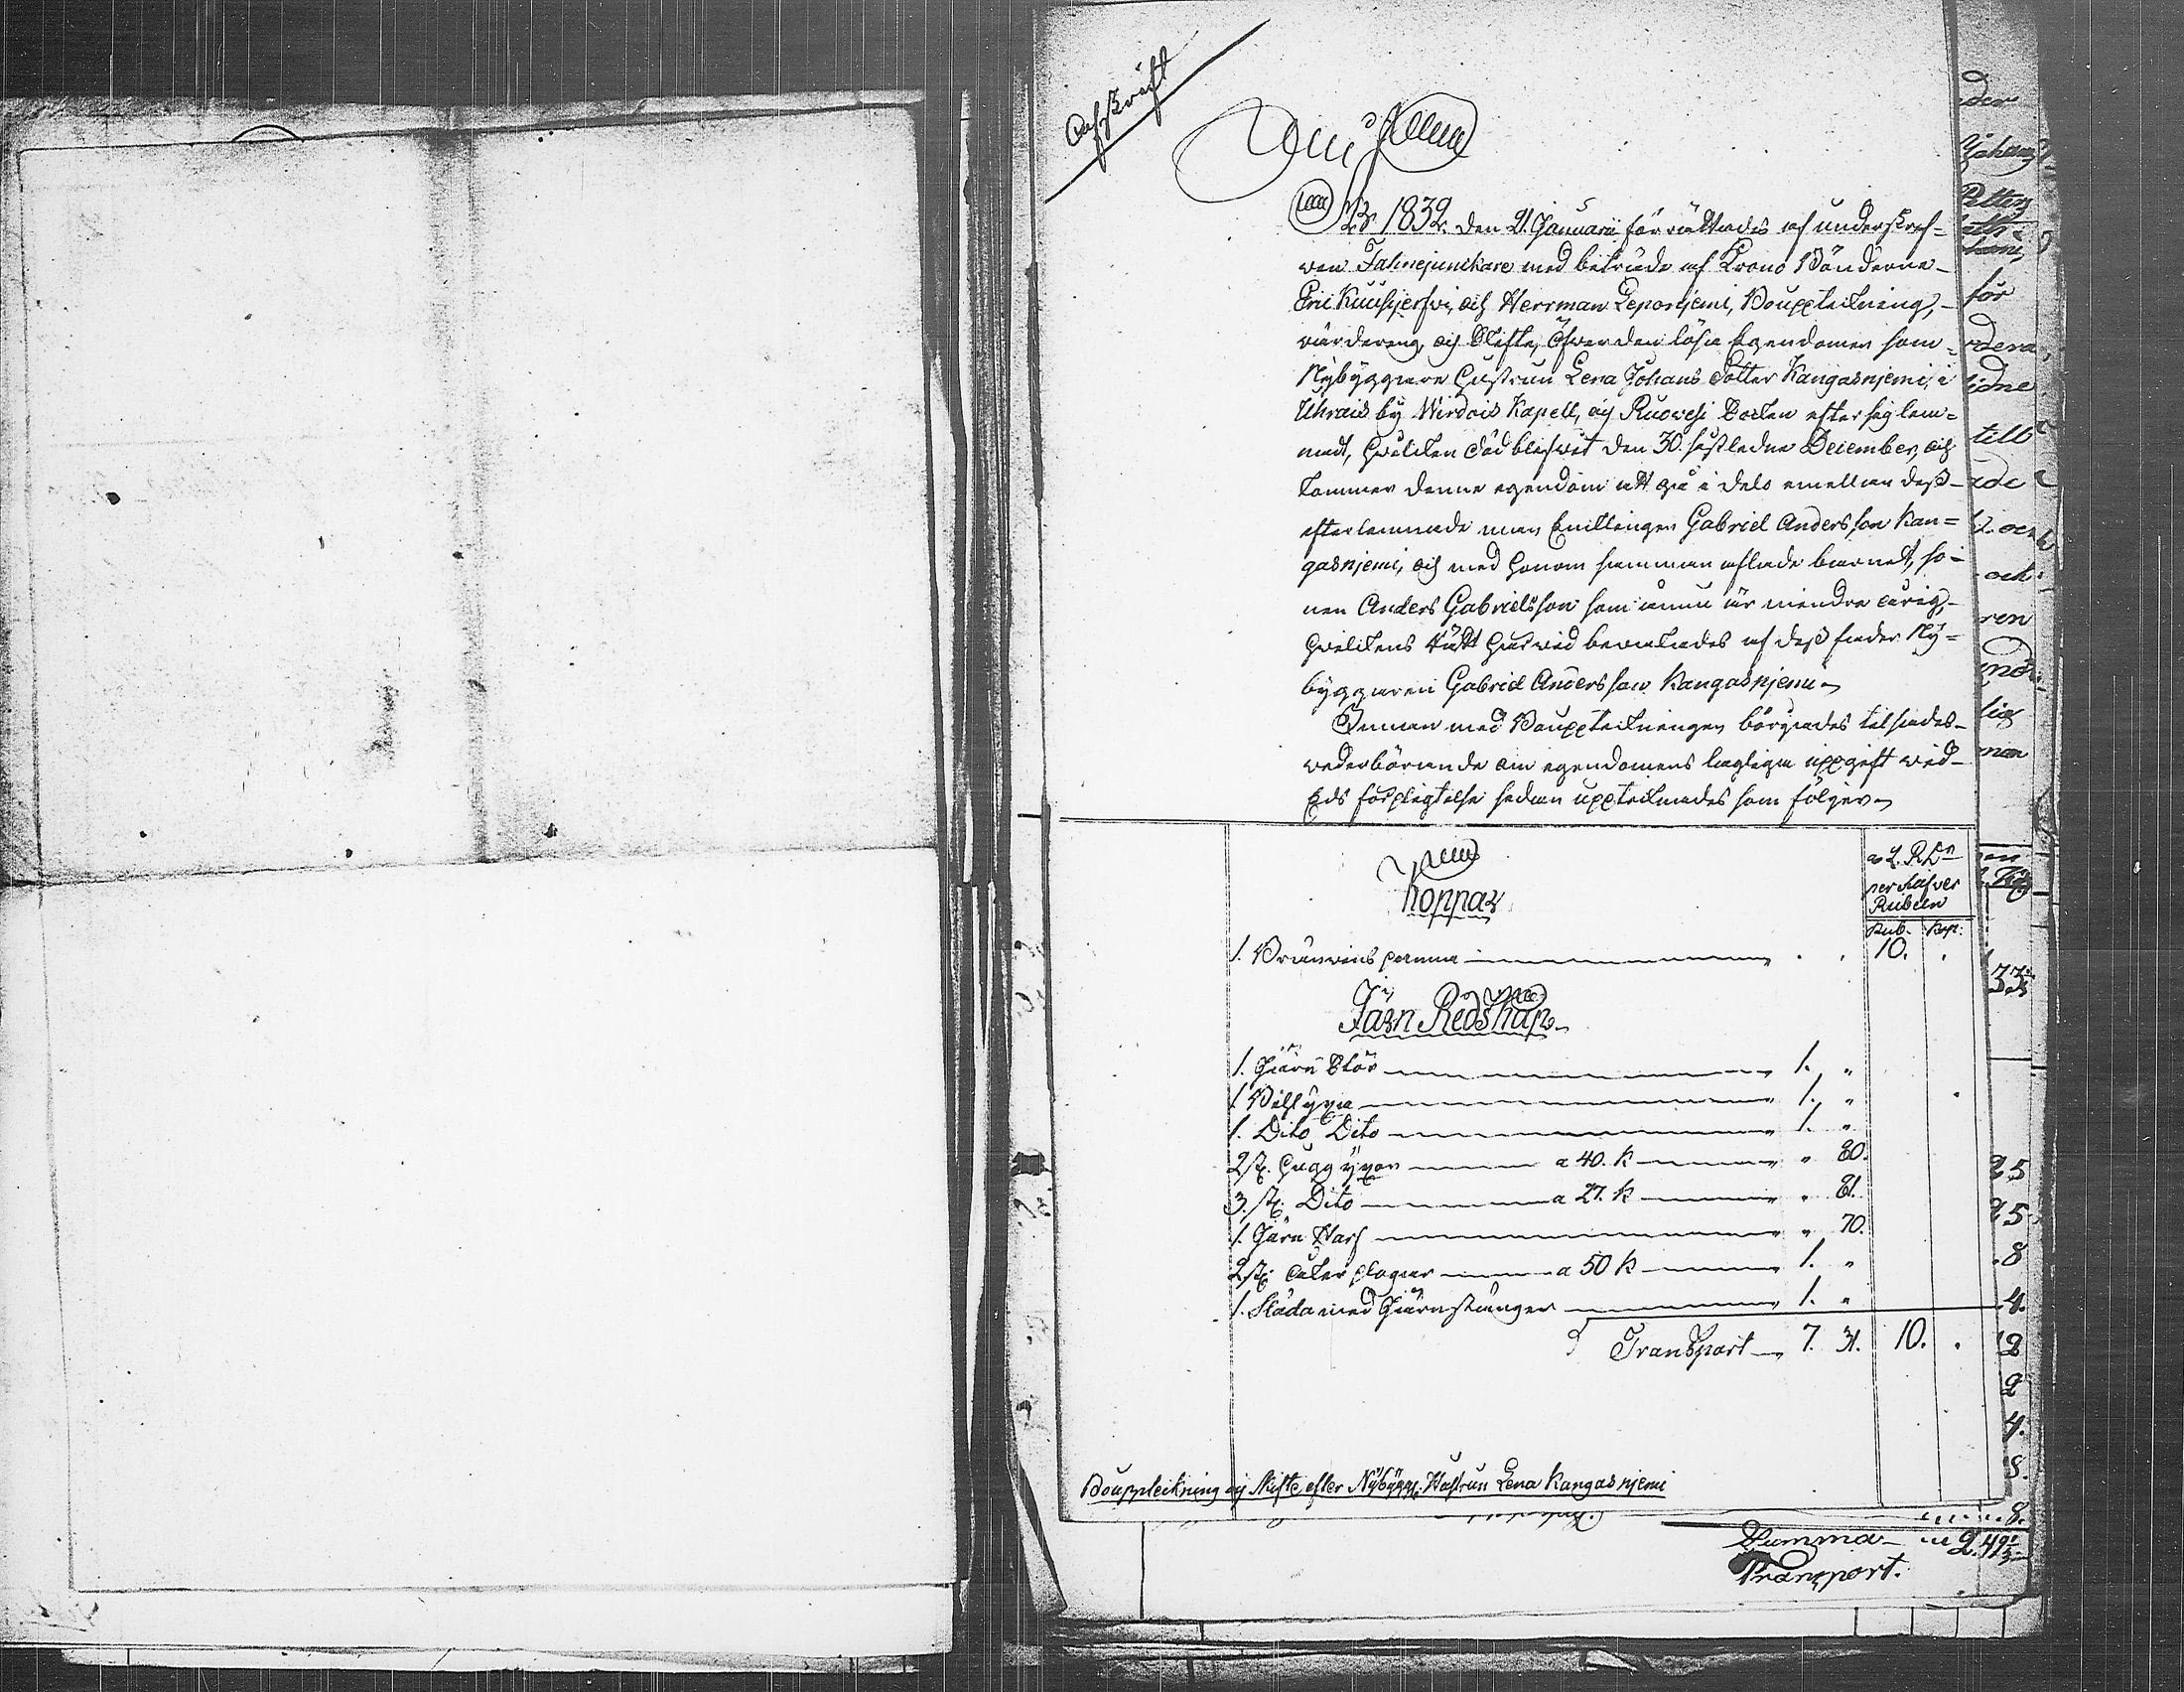 Afskrift
År 1832 den 21 Januarii förrättades af underskref=
wen Fahnejunckare med biträde af Krono Bönderne
Eric Kuusijerfvi, och Herrman Leponjemi, Bouppteckning,
värdering, och Skifte, öfver den lösa Egendomen som
Nybyggare Hustrun Lena Johans Dotter Kangasnjemi, i
Uhrais by Wirdois Kapell, och Ruovesi Socken efter sig lem=
nadt, hvilken död blifwit den 30. sistledne December, och
kommer denne egendom att gå i dels emellan dess
efterlemnade man Enklingen Gabriel Andersson Kan=
gasnjemi, och med honom sammanaflade barnet, so=
nen Anders Gabrielsson som ännu är mindre årig,
hvilckens rätt härvid bevakades af dess fader Ny=
byggaren Gabriel Andersson Kangasnjemi
Innan med Bouppteckningen börjades tilsades
vederbörande om egendomens laglige uppgift wid
Eds förplegtelse sedan upptecknades som följer
Koppar
per Silfver
Rubeln
Rub. Kop:
1. Bränvins panna 10. .
Järn Redskap
1. Järn Stör 1. "
1 Bilyxa 1. "
1. Dito Dito 1. "
2 st. Hugg yxor a 40. K " 80.
3. st. Dito a 27. K " 81.
1. Järn Harf " 70.
2 st. åker plogar a 50 K 1. "
1. Släda med Järnstänger 1. "
Transport 7. 31. 10. .
Bouppteckning och Skifte efter Nybygg. Hustrun Lena Kangasnjemi
Summa 2.49
Transport.